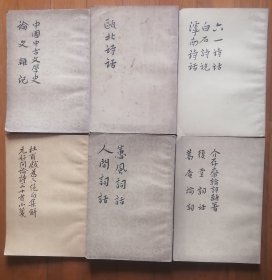 中國中古文學史
論文雜記
甌北詩話
六一詩話
白石詩說
滹南詩話
杜甫戲為六絕句集解
元好問論詩三十首小箋
蕙風詞話
人間詞話
介存齋論詞雜著
復堂詞話
蒿庵論詞